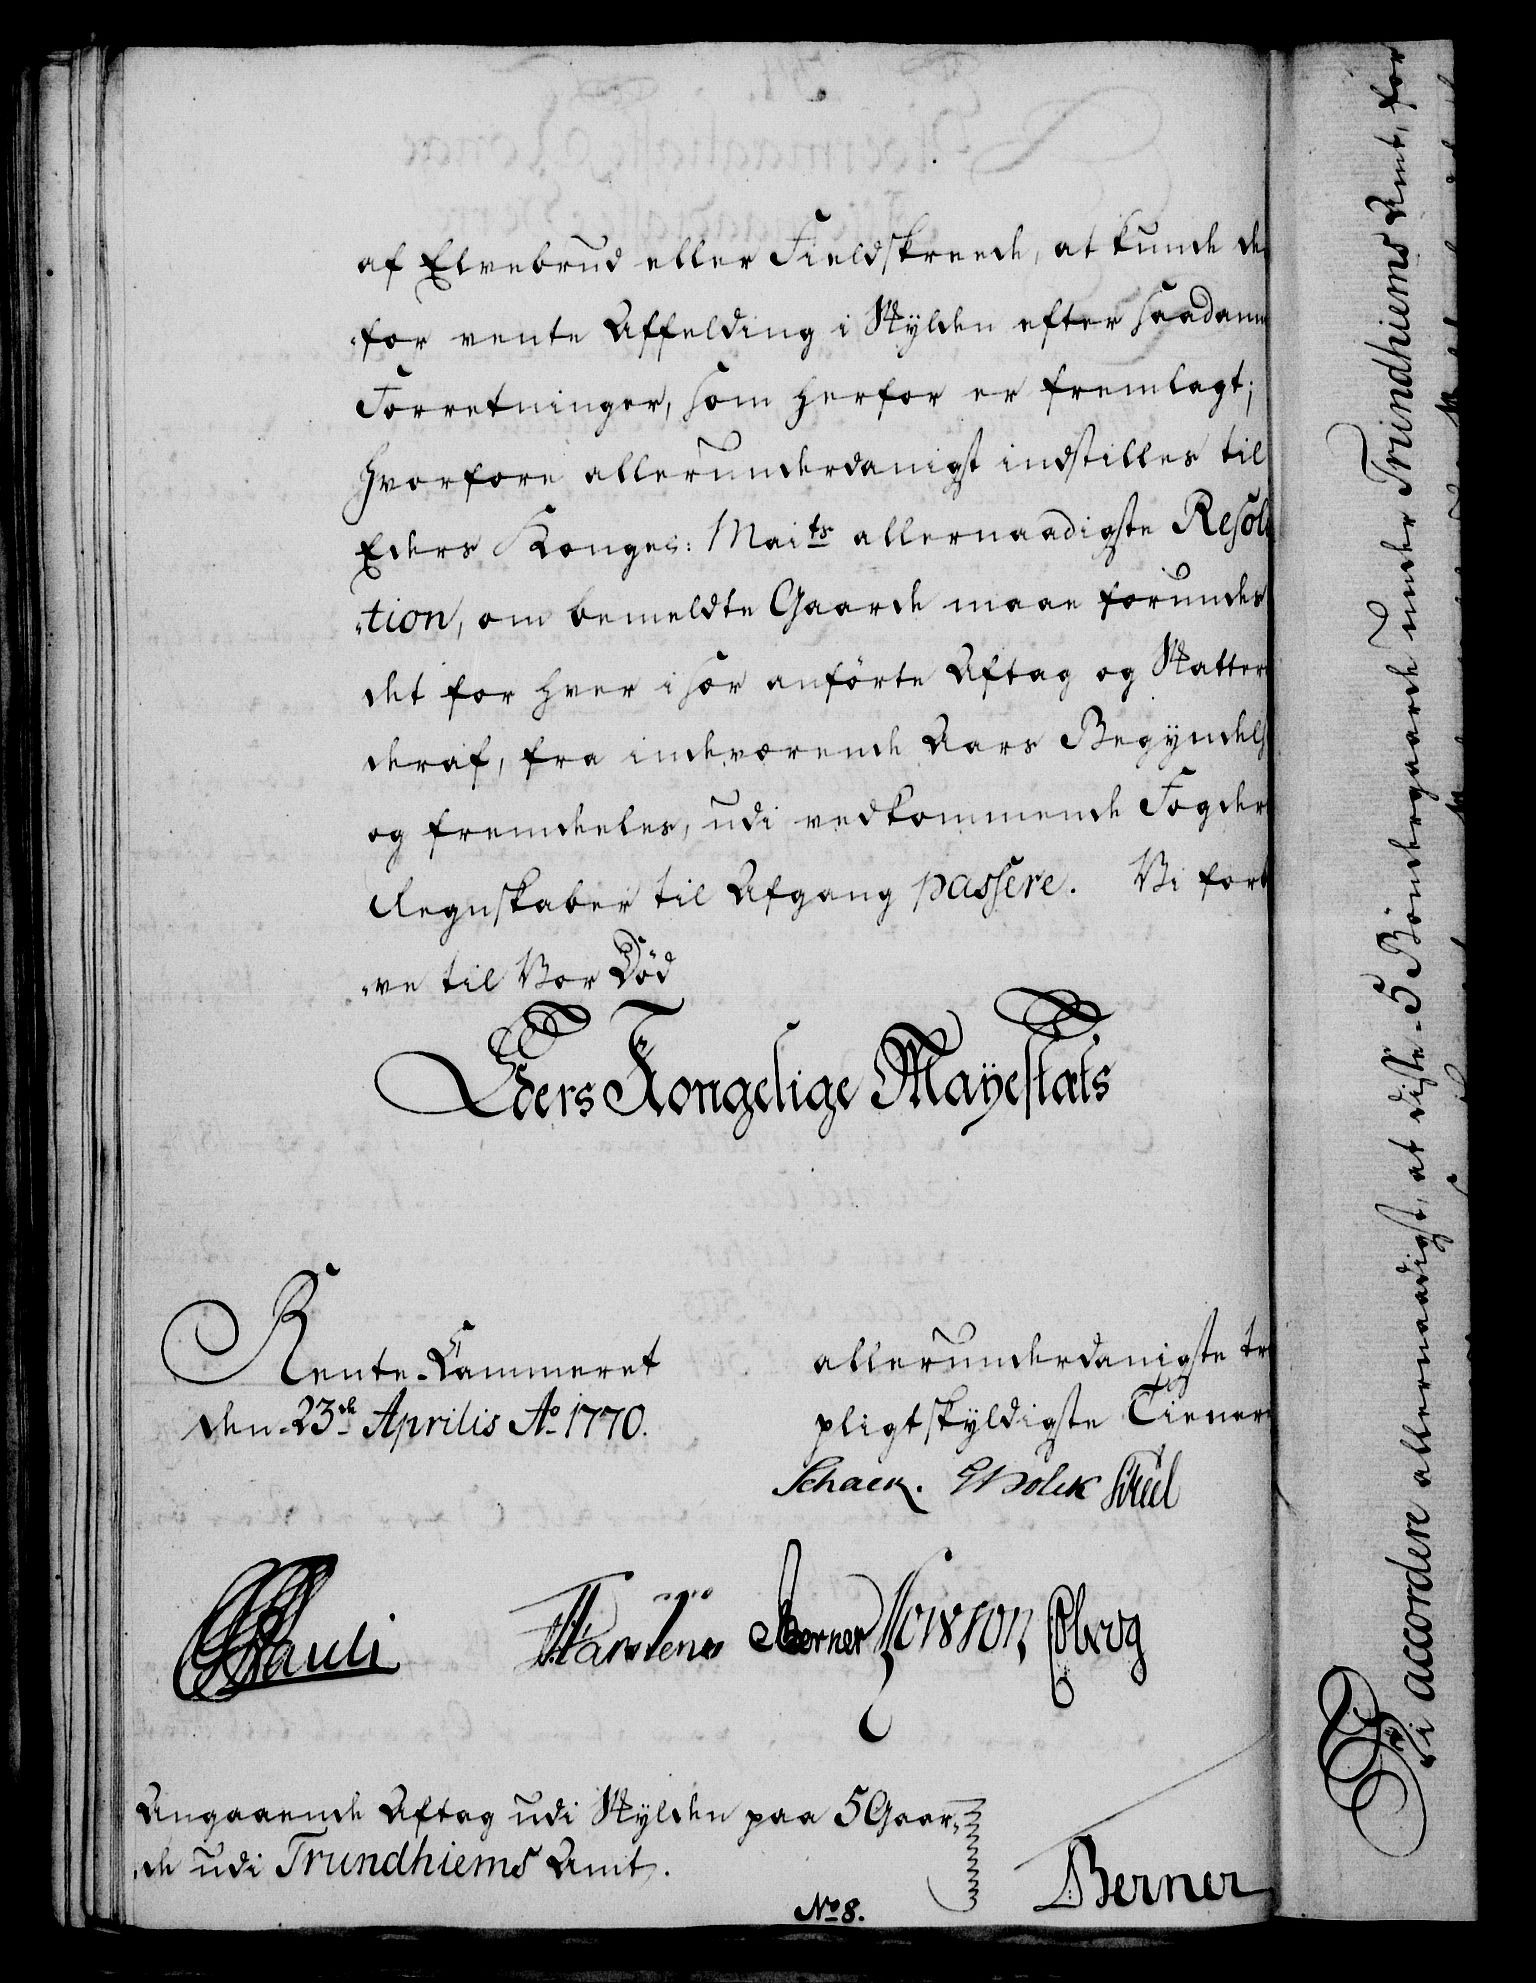 af Elvebrud eller Fieldskreede, at kunde de
for vente Affelding i Skylden efter saadanne
Forretninger, som herfor er fremlagt;
hvorfore allerunderdanigst indstilles til
Eders Konges: Maits allernaadigste Resolu
tion, om bemeldte Gaarde maae forundes
det for hver især anførte Aftag og Skatter
deraf, fra indeværende Aars Begyndels
og fremdeeles, udi vedkommende Fogders
Regnskaber til Afgang passere. Vi fort
ve til Vor Død
Eders Kongelige Mayestæts
Rente-Cammeret
den 23de Aprilis Ao 1770.
allerunderdanigste tro
pligtskyldigste Tienere
Schack. GHolck Juel
Pauli Karstens Berner Kowson Öberg
Angaaende Aftag udi Skylden paa 5 Gaar-
de udi Trundhiems Amt.
Berner
No 8.
Vi accordere allernaadigst, at disse 5 Bøndergaarde under Trundhiems Amt, for